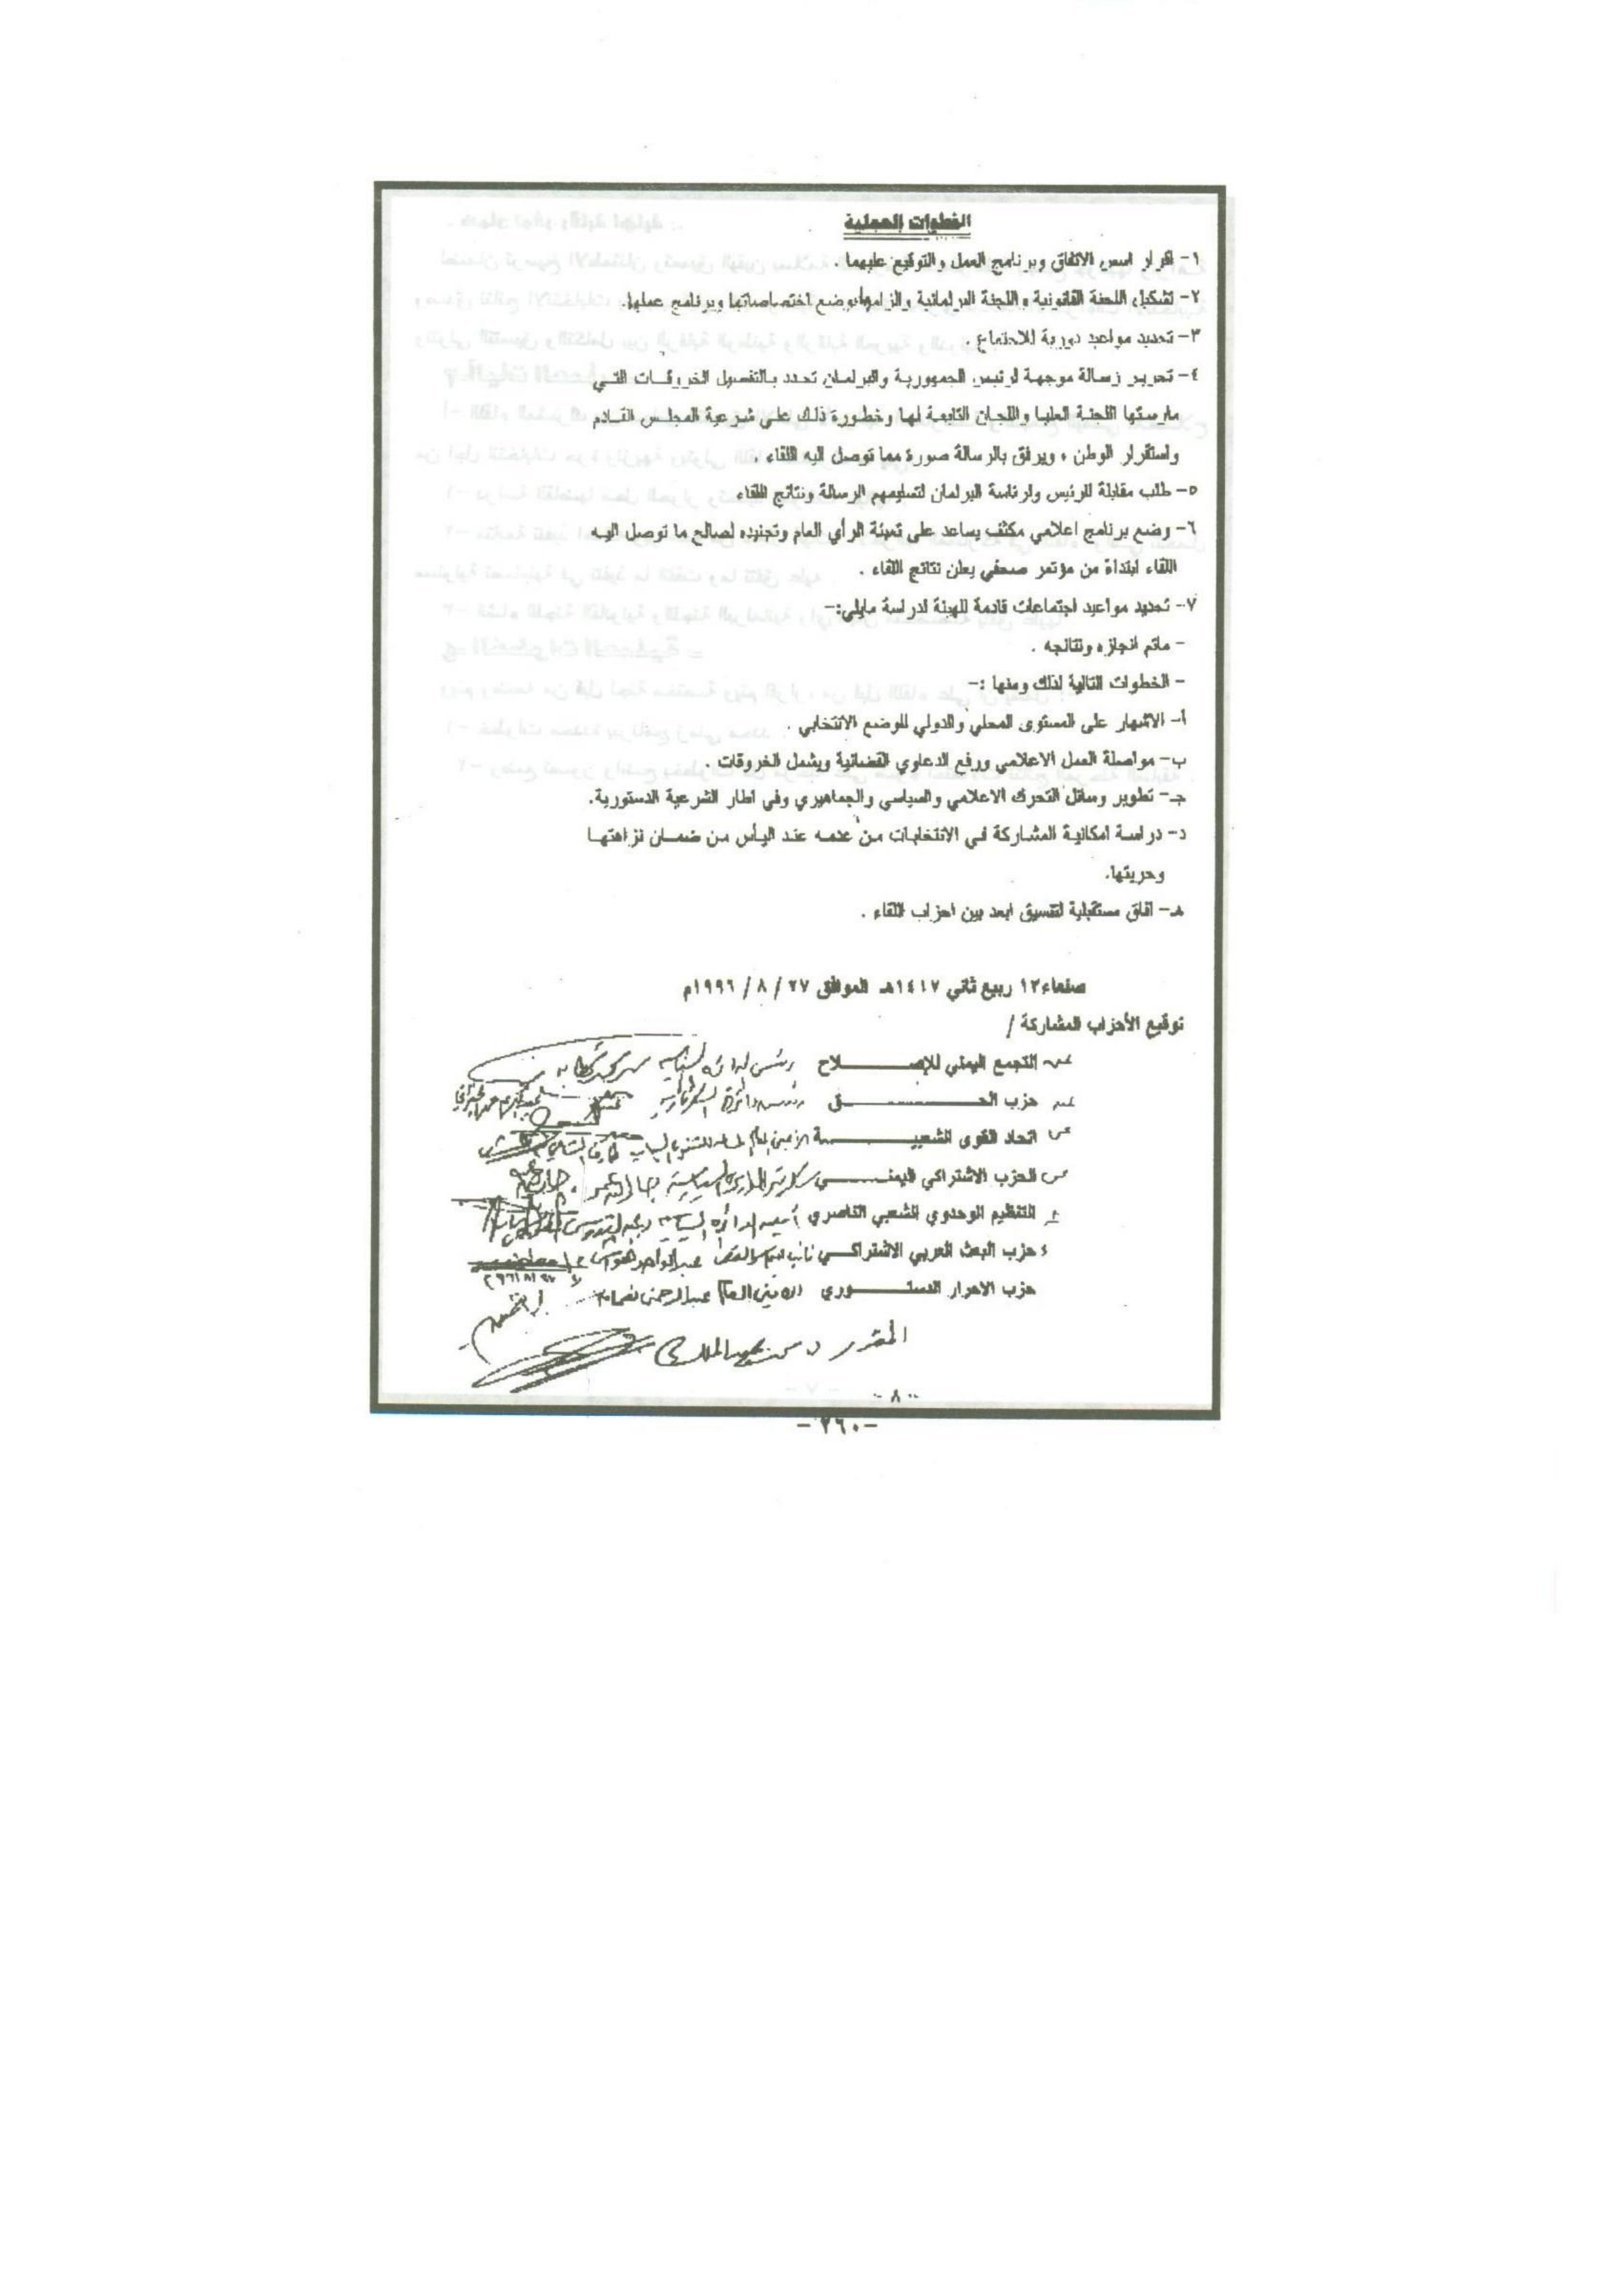 الخطوات العملية
١- اقرار اسس الاتفاق وبرنامج العمل والتوقيع عليهما .
٢- تشكيل اللجنة القانونية واللجنة البرلمانية والزامهما بوضع اختصاصاتها وبرنامج عملها.
٣- تحديد مواعيد دورية للاجتماع .
٤- تحرير رسالة موجهة لرئيس الجمهورية والبرلمان تحدد بالتفصيل الخروقات التي
مارستها اللجنة العليا واللجان التابعة لها وخطورة ذلك على شرعية المجلس القادم
واستقرار الوطن ، ويرفق بالرسالة صورة مما توصل اليه اللقاء .
٥- طلب مقابلة للرئيس ولرئاسة البرلمان لتسليمهم الرسالة ونتائج اللقاء
٦- وضع برنامج اعلامي مكثف يساعد على تعبئة الرأي العام وتجنيده لصالح ما توصل اليه
اللقاء ابتداءً من مؤتمر صحفي يعلن نتائج اللقاء .
٧- تحديد مواعيد اجتماعات قادمة للهيئة لدراسة مايلي:-
- ماتم انجازه ونتائجه .
- الخطوات التالية لذلك ومنها :-
أ- الاشهار على المستوى المحلي والدولي للوضع الانتخابي .
ب- مواصلة العمل الاعلامي ورفع الدعاوي القضائية ويشمل الخروقات .
جـ- تطوير وسائل التحرك الاعلامي والسياسي والجماهيري وفي اطار الشرعية الدستورية.
د- دراسة امكانية المشاركة في الانتخابات من عدمه عند اليأس من ضمان نزاهتها
وحريتها.
هـ- افاق مستقبلية لتنسيق ابعد بين احزاب اللقاء .
صنعاء ١٢ ربيع ثاني ١٤١٧هـ الموافق ٢٧ / ٨ / ١٩٩٦م
توقيع الأحزاب المشاركة /
عن التجمع اليمني للإصـــــلاح رئيس الدائرة السياسية
عن حزب الحـــــــــق رئيس دائرة
عن اتحاد القوى الشعبيــــــة الأمين العام
عن الحزب الاشتراكي اليمنـــــي سكرتير الدائرة السياسية جار الله عمر
ع التنظيم الوحدوي الشعبي الناصري أمين الدائرة السياسية
ع حزب البعث العربي الاشتراكـــي نائب امين سر القطر عبدالواحد هواش
حزب الاحرار الدستـــــــوري الامين العام عبدالرحمن نعمان
المقرر د محمد عبدالملك
- ٨ -
- ٢٦٠ -